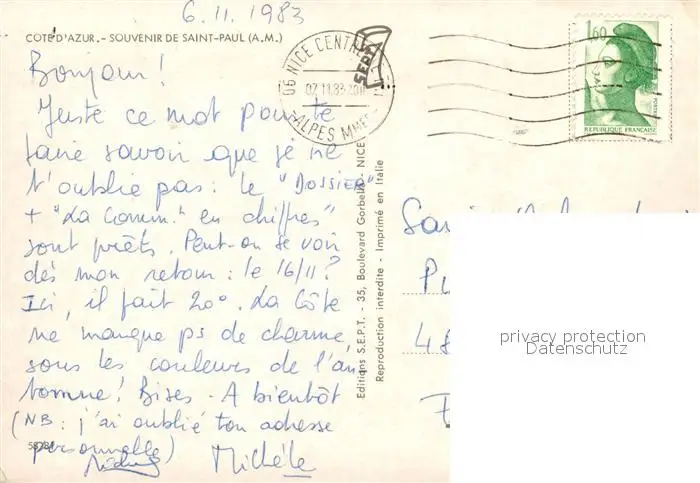 6.11.1983
COTE D'AZUR.- SOUVENIR DE SAINT-PAUL (A.M.)
Bonjour!
Juste ce mot pour te
faire savoir que je ne
t'oublie pas: le "DOSSIER"
+ "La Comm." en chiffres"
sont prêts. Peut-on se voir
dès mon retour: le 16/11?
Ici, il fait 20°. La Côte
ne manque ps de charme,
sous les couleurs de l'au
tomne! Bises - A bientôt
(NB: j'ai oublié ton adresse
personnelle)
Michèle
58284
Editions S.E.P.T. - 35, Boulevard Gorbella - NICE
Reproduction interdite - Imprimé en Italie
SEPT
06 NICE CENTRAL
07 11 83
ALPES MMES
1,60
POSTES
REPUBLIQUE FRANÇAISE
48
privacy protection
Datenschutz